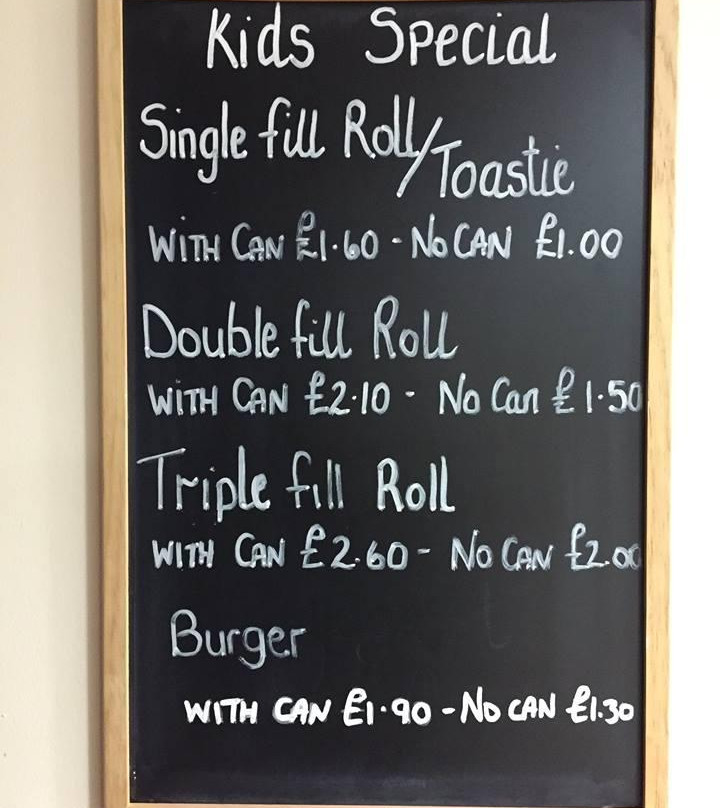 Kids Special
Single fill Roll/Toastie
WITH CAN £1.60 - No CAN £1.00
Double fill Roll
WITH CAN £2.10 - No Can £1.50
Triple fill Roll
WITH CAN £2.60 - No CAN £2.00
Burger
WITH CAN £1.90 - No CAN £1.30